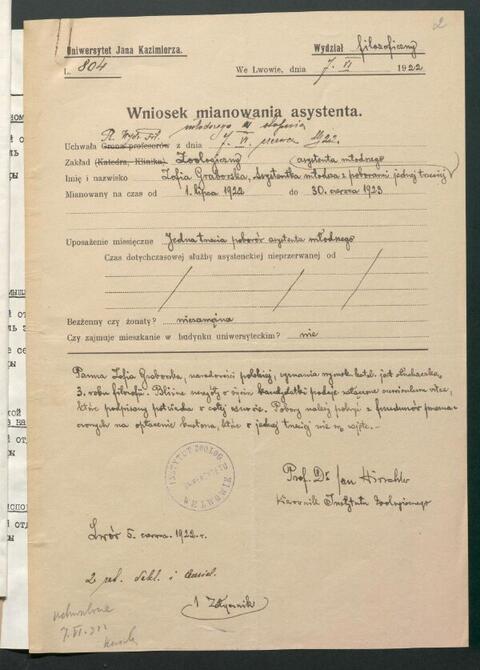 2
Uniwersytet Jana Kazimierza.
Wydział filozoficzny
L. 804
We Lwowie, dnia 7. VI 1922
Wniosek mianowania asystenta.
młodszego stopnia
R. Wydz. Fil.
Uchwała Grona profesorów z dnia 7. VI. 1922.
Zakład (Katedra, Klinika) Zoologiczny
asystenta młodszego
Imię i nazwisko Zofia Graborska, asystentka młodsza z poborami jednej trzeciej
Mianowany na czas od 1. lipca 1922 do 30. czerwca 1923
Uposażenie miesięczne Jedna trzecia poborów asystenta młodszego
Czas dotychczasowej służby asystenckiej nieprzerwanej od
Bezżenny czy żonaty? niezamężna
Czy zajmuje mieszkanie w budynku uniwersyteckim? nie
Panna Zofia Graborska, narodowości polskiej, wyznania rzymsk. katol. jest słuchaczką
3. roku filozofii. Bliższe szczegóły o życiu kandydatki podaje załączone curriculum vitae,
które podpisany potwierdza w całej
na opłacenie które w jednej trzeciej nie są zajęte.
INSTYTUT ZOOLOG.
WE LWOWIE
Prof. Dr Jan Hirschler
Kierownik Instytutu Zoologicznego
Lwów 5. czerwca 1922 r.
2 i
1 Załącznik
Uchwalono
7. VI. 922